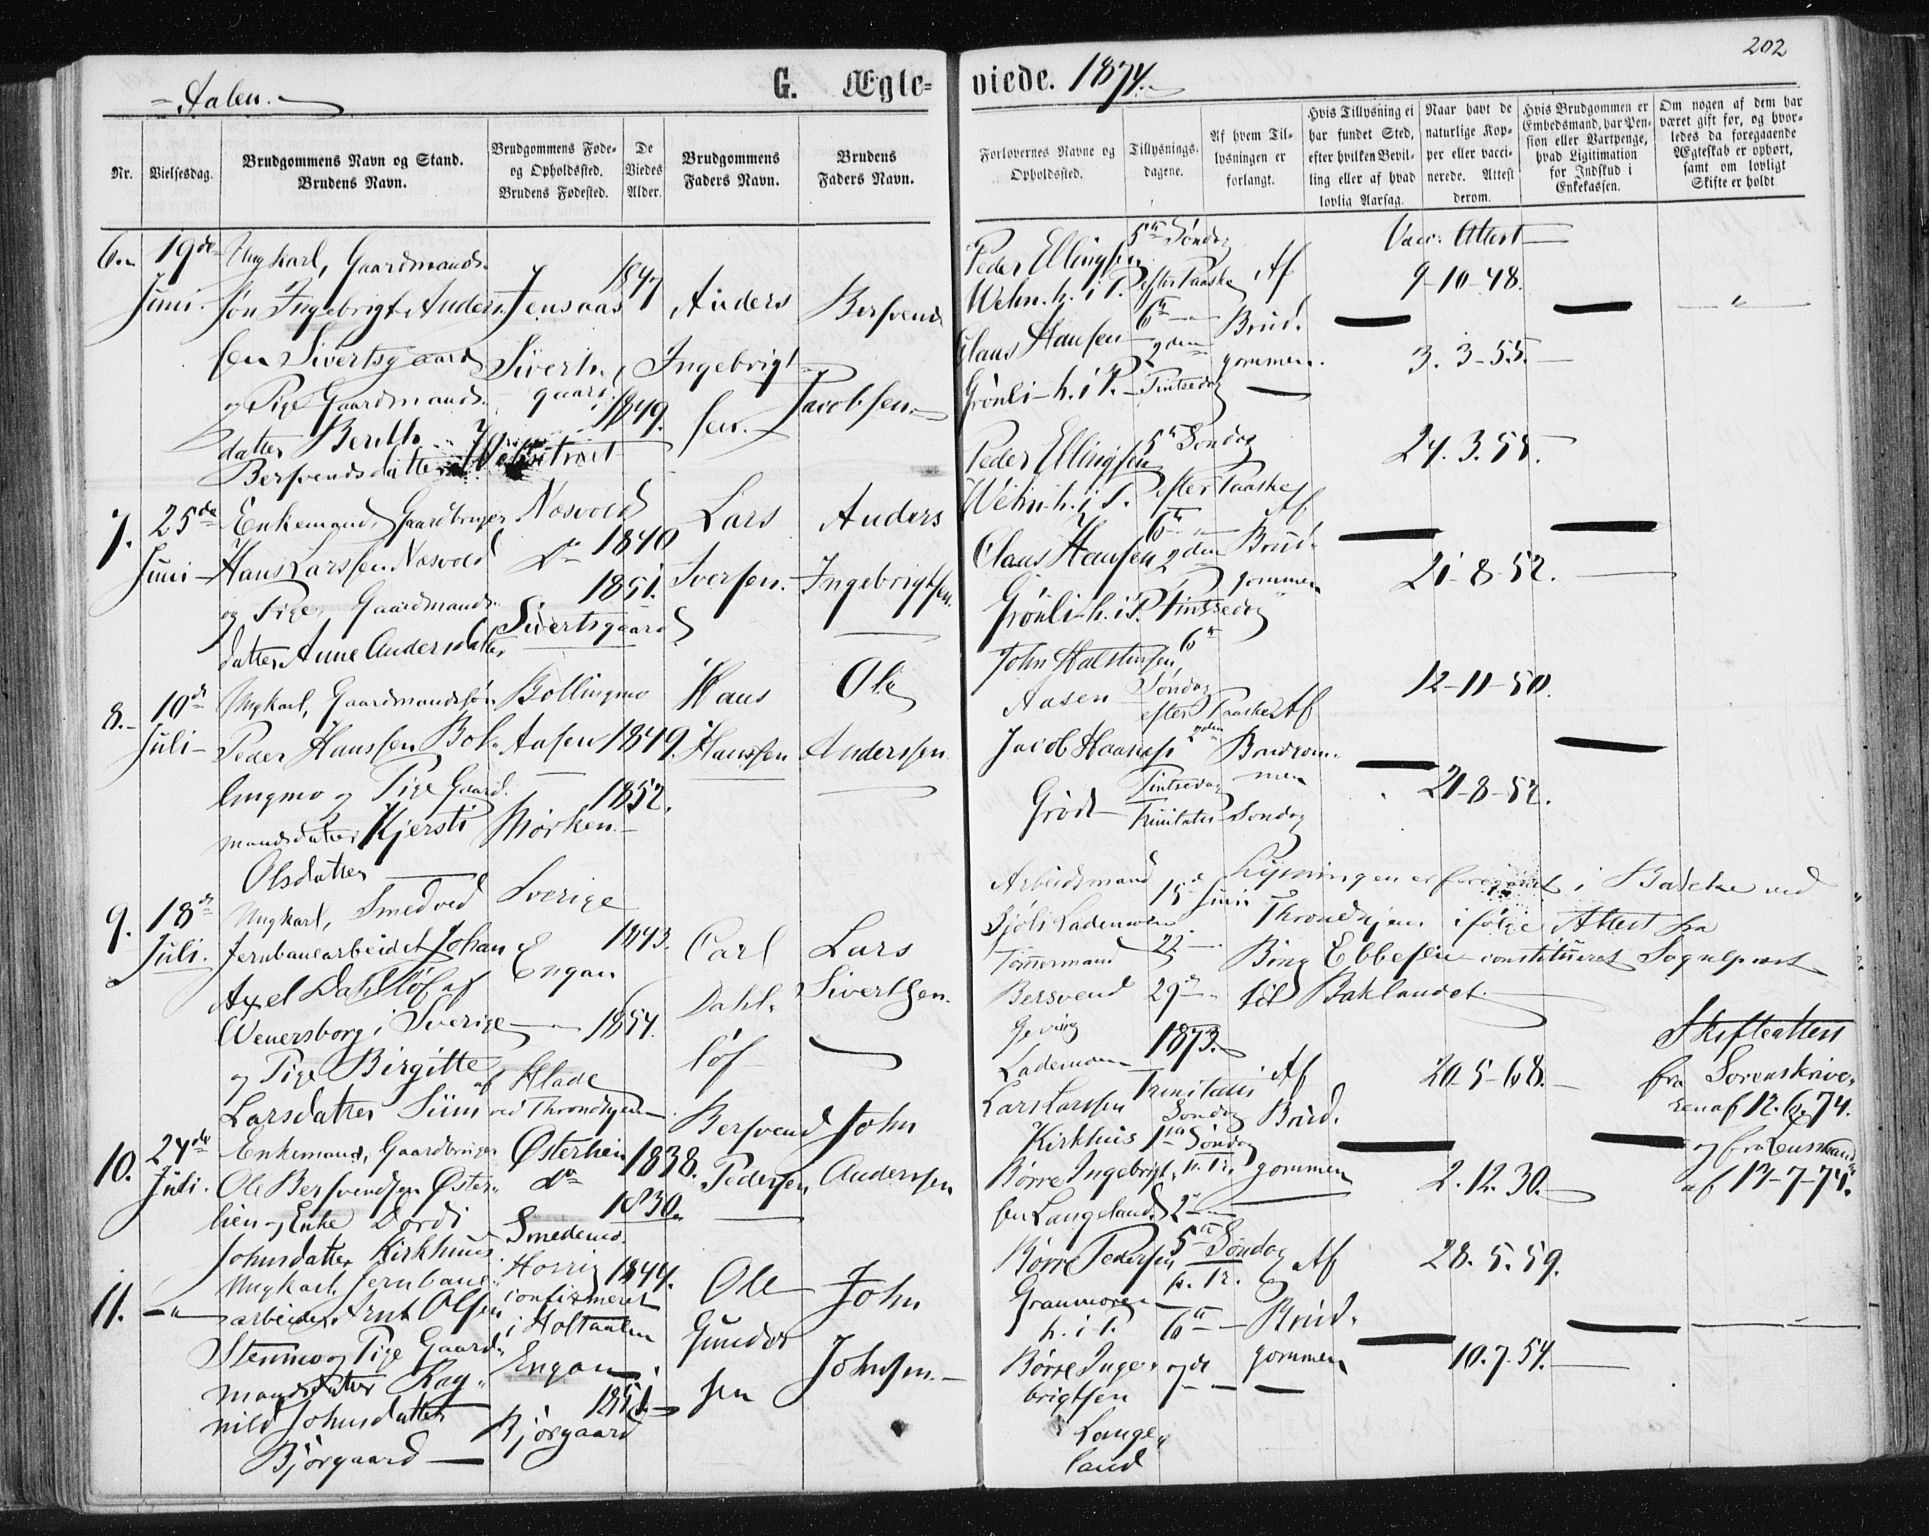 202
- Aalen. -
G. Ægte-
viede. 1874.
Nr.
Vielsesdag.
Brudgommens Navn og Stand.
Brudens Navn.
Brudgommens Føde-
og Opholdssted.
Brudens Fødested.
De
Viedes
Alder.
Brudgommens
Faders Navn.
Brudens
Faders Navn.
Forlovernes Navne og
Opholdssted.
Tillysnings-
dagene.
Af hvem Til-
lysningen er
forlangt.
Hvis Tillysning ei
har fundet Sted,
efter hvilken Bevil-
ling eller af hvad
lovlig Aarsag.
Naar havt de
naturlige Kop-
per eller vacci-
nerede. Attest
derom.
Hvis Brudgommen er
Embedsmand, har Pen-
sion eller Vartpenge,
hvad Ligitimation
for Indskud i
Enkekassen.
Om nogen af dem har
været gift før, og hvor-
ledes da foregaaende
Ægteskab er ophørt,
samt om lovligt
Skifte er holdt
6.
19de
Juni.
Ungkarl, Gaardmands-
søn Ingebrigt Anders-
sen Sivertsgaard
og Pige Gaardmands-
datter Berith
Bersvendsdatter
Jensaas
Siverts-
gaard
1847
1849.
Anders
Ingebrigt-
sen.
Bersvend
Jacobsen.
Peder Ellingsen
Wehn. h. i P.
Claus Hansen
Grönli h. i P.
5te Søndag
efter Paaske
6te
2den
Pintsedag
Af
Brud-
gommen.
Vacc. Attest
9-10-48.
3. 3-55.
7.
25de
Juni
Enkemand, Gaardbruger
Hans Larssen Nosvold
og Pige, Gaardmands-
datter Anne Andersdatter
Nosvold
do
Sivertsgaard
1840
1851.
Lars
Iversen.
Anders
Ingebrigtsen.
Peder Ellingsen
Wehn. h. i P.
Claus Hansen
Grönli h. i P.
5te Søndag
efter Paaske
6te
2den
Pintsedag
Af
Brud-
gommen
24. 3. 55.
21-8-52.
8.
10de
Juli
Ungkarl, Gaardmandssøn
Peder Hanssen Bol-
lingmo og Pige Gaard-
mandsdatter Kjersti
Olsdatter
Bollingmo
Aasen
Mørken
1849.
1852.
Hans
Hanssen
Ole
Anderssen
John Halstensen
Aasen
Jacob Haansen
Gröd
6te
Søndag
efter Paaske
2den
Pintsedag
Trinitatis Søndag
Af
Brudgom-
men
12-11-50.
21-8-52.
9.
18de
Juli.
Ungkarl, Smed ved
Jernbanearbeidet Johan
Axel Dahllöf af
Wenersborg i Sverige
og Pige Birgitte
Larsdatter
Sverige
Engan
af Hlade
ved Throndhjem
1843.
1854.
Carl
Dahl-
löf
Lars
Sivertsen.
Arbeidsmand
Tømmermand
Bersvend
Geving
Lademoen
15de Juni
22
29de
1873.
Lysningen er foregaaet i Bakke ved
Throndhjem ifølge Attest fra
Bing Ebbesen constitueret Sognepræst
til Baklandet.
10.
24de
Juli.
Enkemand, Gaardbruger
Ole Bersvendsen Øster-
lien og Enke Dordi
Johnsdatter Kirkhuus
Østerlien
do
Smedemo.
1838.
1830.
Bersvend
Pedersen
John
Anderssen
Lars Larssen
Kirkhus
Børre Ingebrigt-
sen Langeland
Trinitatis
Søndag
1ste Søndag
e. Tr.
2
Af
Brud-
gommen
20-5-68.
2. 12. 30.
Skifteattest
fra Sorenskrive-
ren af 12. 6. 74.
og fra Lensmand
af 13-7-74.
11.
Ungkarl, Jernbane-
arbeider Arnt Olsen
Stenmo og Pige Gaard-
mandsdatter Rag-
nild Johnsdatter
Bjørgaard
confirmeret
i Holtaalen
Engan
Bjørgaard
1844.
1851.
Ole
Gunder
sen
John
Johnsen.
Børre Pedersen
Granmoen
h. i P.
Børre Inge-
brigtsen
Lange-
land
5te Søndag
e. Tr.
6te
7de
Af
Brud-
gommen
28. 5. 59.
10. 7. 54.